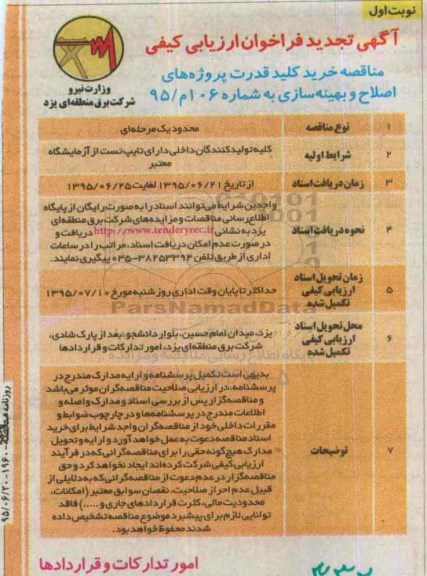 نوبت اول
آگهی تجدید فراخوان ارزیابی کیفی
مناقصه خرید کلید قدرت پروژه‌های
اصلاح و بهینه‌سازی به شماره ۱۰۶م/۹۵
وزارت نیرو
شرکت برق منطقه‌ای یزد
۱ نوع مناقصه محدود یک مرحله‌ای
۲ شرایط اولیه کلیه تولیدکنندگان داخلی دارای تایپ تست از آزمایشگاه
معتبر
۳ زمان دریافت اسناد از تاریخ ۱۳۹۵/۰۶/۲۱ لغایت ۱۳۹۵/۰۶/۲۵
۴ نحوه دریافت اسناد واجدین شرایط می‌توانند اسناد را به صورت رایگان از پایگاه
اطلاع‌رسانی مناقصات و مزایده‌های شرکت برق منطقه‌ای
یزد به نشانی http://www.tenderyrec.ir دریافت و
در صورت عدم امکان دریافت اسناد، مراتب را در ساعات
اداری از طریق تلفن ۳۸۲۵۳۳۹۴-۰۳۵ پیگیری نمایند.
۵ زمان تحویل اسناد
ارزیابی کیفی
تکمیل شده
حداکثر تا پایان وقت اداری روز شنبه مورخ ۱۳۹۵/۰۷/۱۰
ParsNamadData
۶ محل تحویل اسناد
ارزیابی کیفی
تکمیل شده
یزد، میدان امام حسین، بلوار دانشجو، بعد از پارک شادی،
شرکت برق منطقه‌ای یزد، امور تدارکات و قراردادها
۷ توضیحات
بدیهی است تکمیل پرسشنامه و ارایه مدارک مندرج در
پرسشنامه، در ارزیابی صلاحیت مناقصه‌گران موثر می‌باشد
و مناقصه‌گزار پس از بررسی اسناد و مدارک واصله و
اطلاعات مندرج در پرسشنامه‌ها و در چارچوب ضوابط و
مقررات داخلی خود از مناقصه‌گران واجد شرایط برای خرید
اسناد مناقصه دعوت به عمل خواهد آورد و ارایه و تحویل
مدارک هیچ‌گونه حقی را برای مناقصه‌گرانی که در فرآیند
ارزیابی کیفی شرکت کرده‌اند ایجاد نخواهد کرد و حق
مناقصه‌گزار در عدم دعوت از مناقصه‌گرانی که به دلایلی از
قبیل عدم احراز صلاحیت، نقصان سوابق معتبر (امکانات،
محدودیت مالی، کثرت قراردادهای جاری و .....) فاقد
توانایی لازم برای پیشبرد موضوع مناقصه تشخیص داده
شدند محفوظ خواهد بود.
امور تدارکات و قراردادها
روزنامه ۱۹۶۰-۹۵/۰۶/۲۰